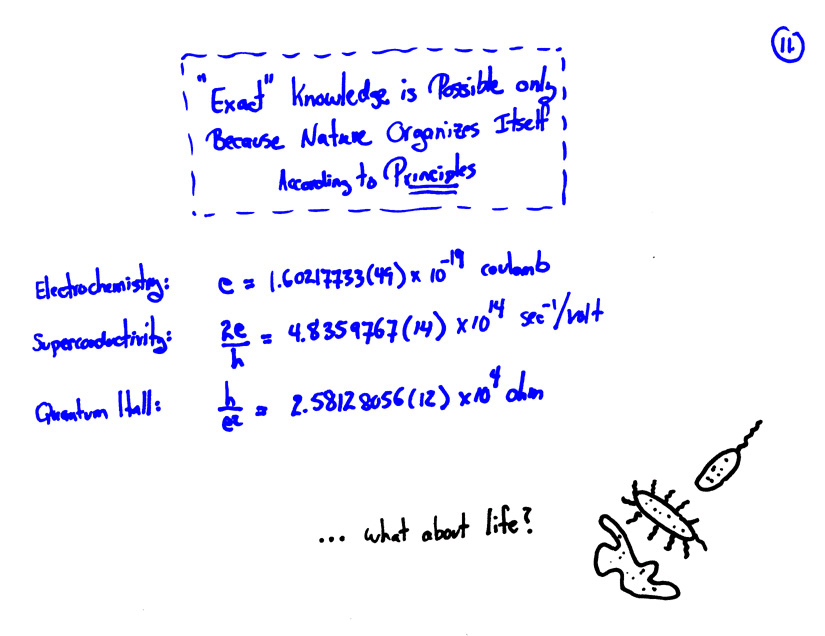 11.
"Exact" Knowledge is Possible only
Because Nature Organizes Itself
According to Principles
Electrochemistry: e = 1.60217733(49) × 10^-19 coulomb
Superconductivity: 2e/h = 4.8359767(14) × 10^14 sec^-1/volt
Quantum Hall: h/e^2 = 2.58128056(12) × 10^4 ohm
... what about life?